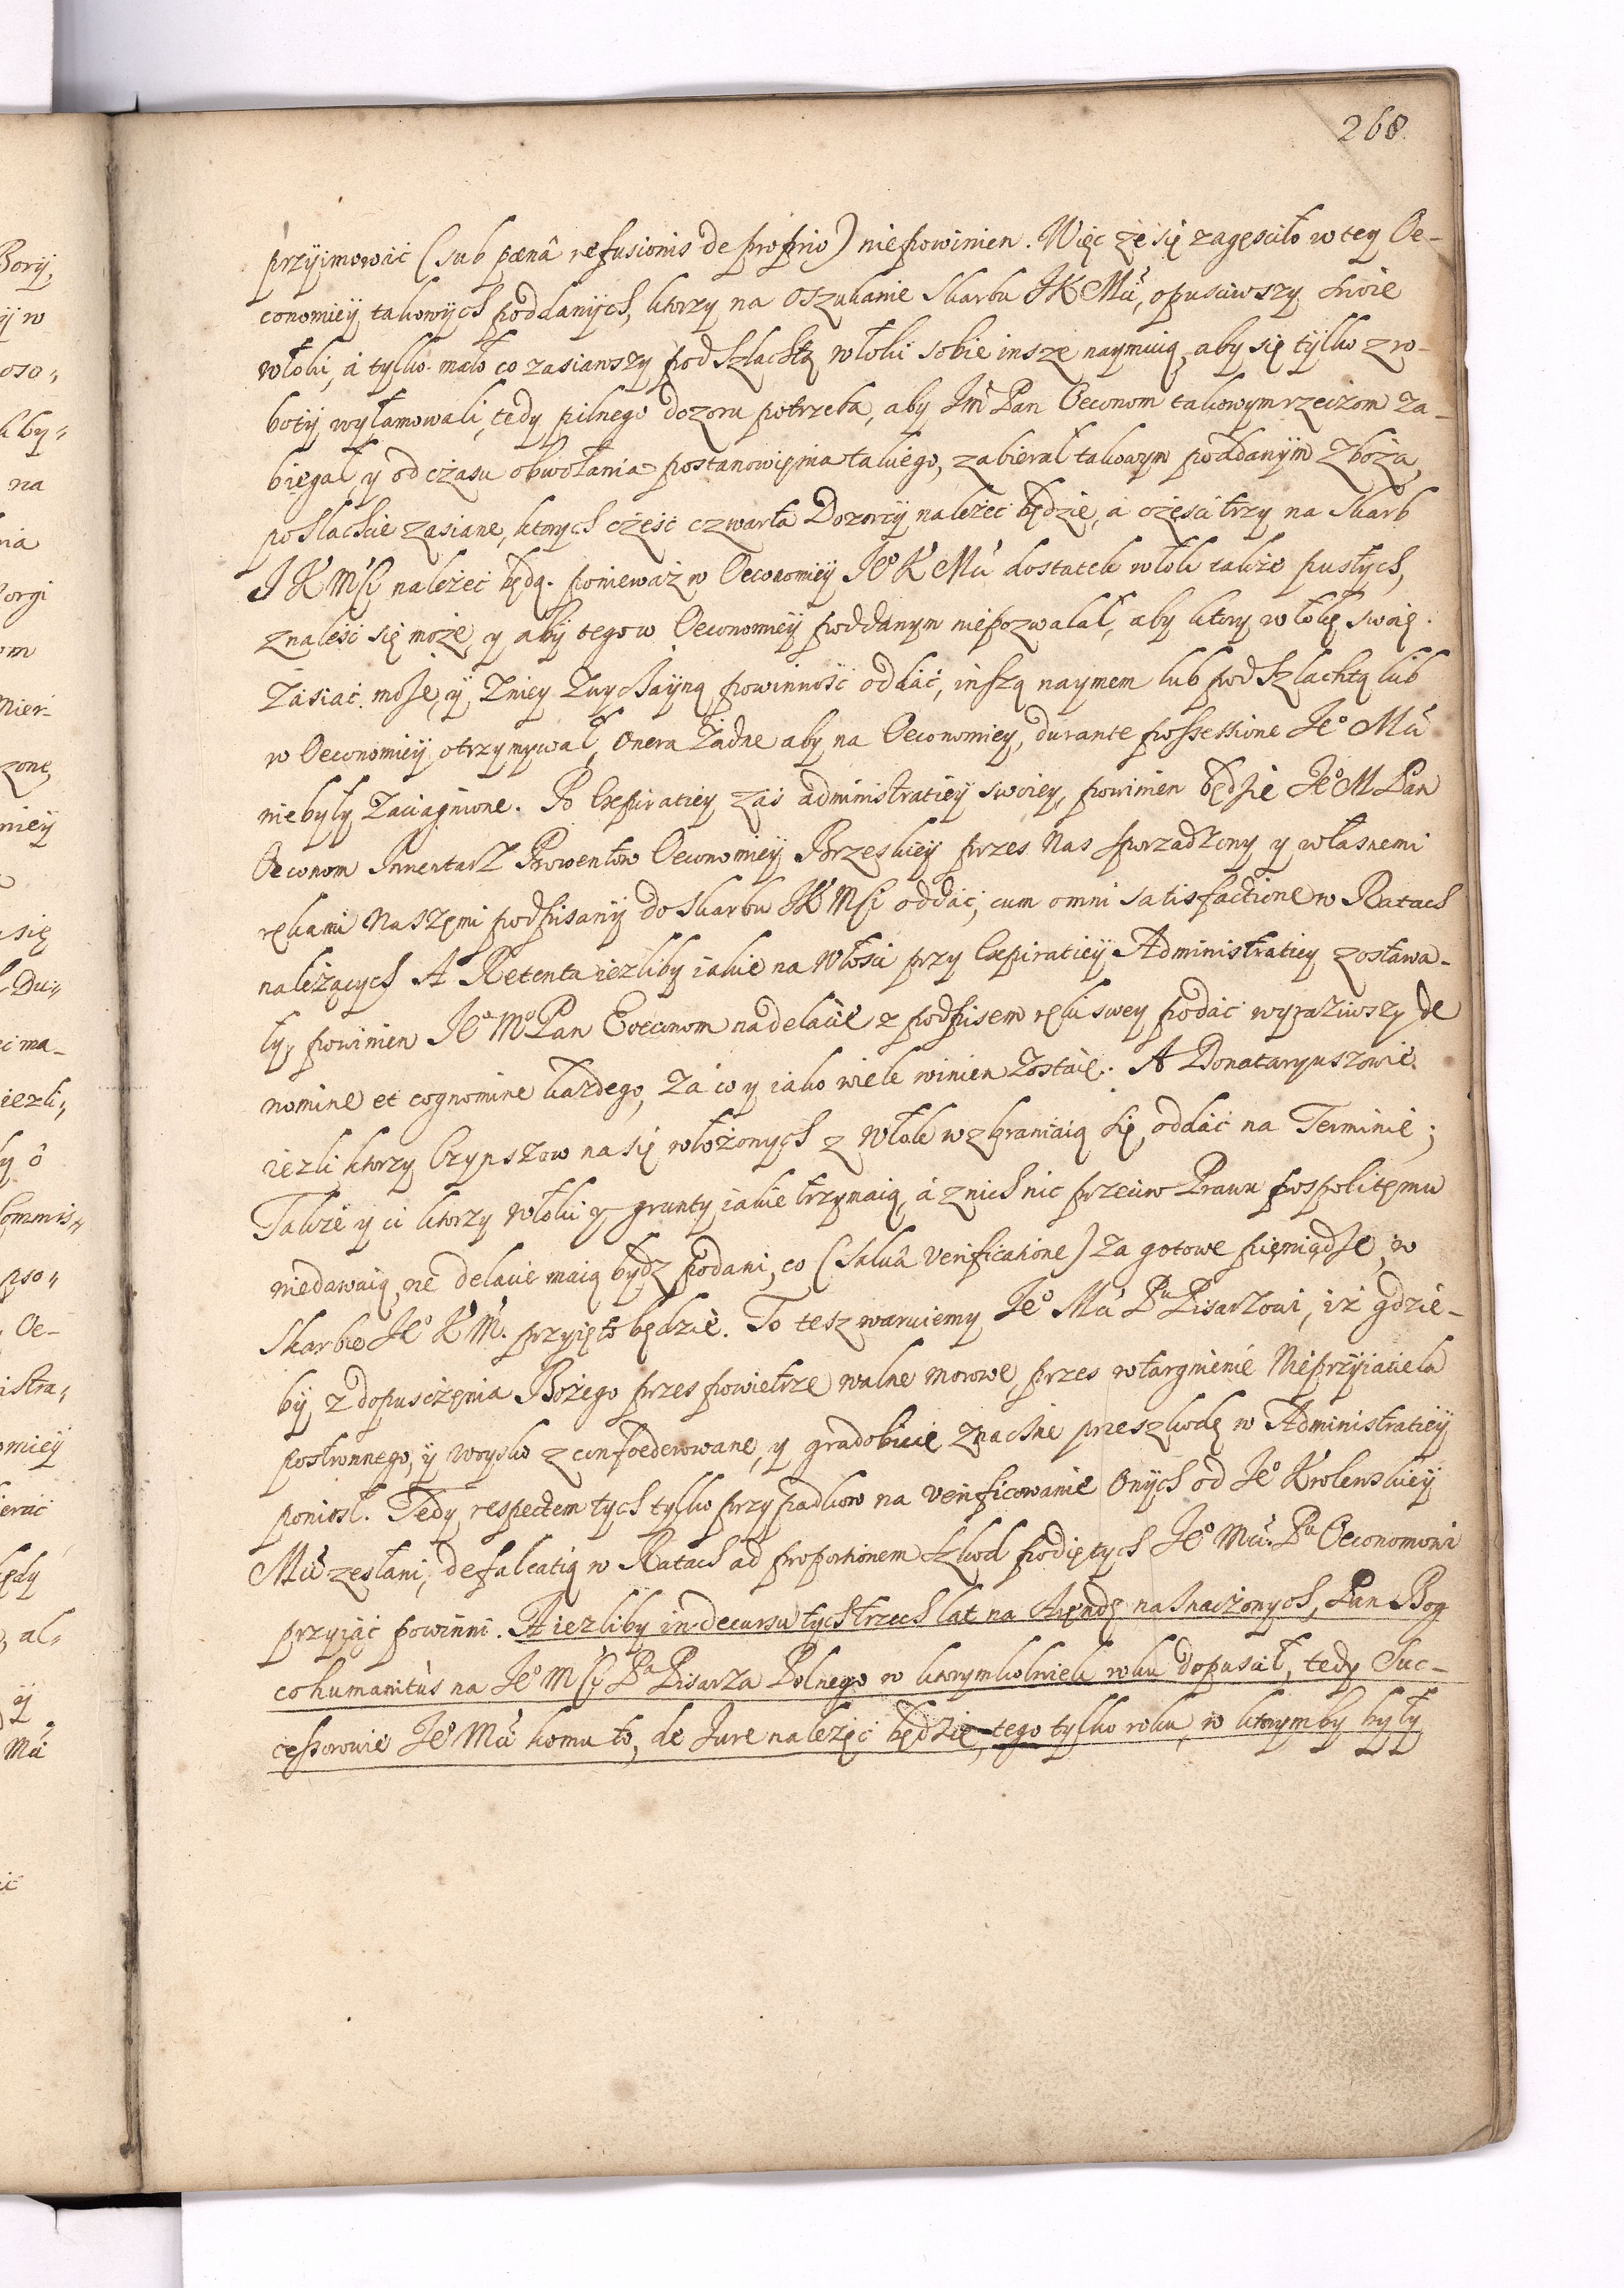 268.
przyimować (sub pænâ refusionis de proprio) niepowinien. Więc że się zagęsciło w tey Oe-
conomiey takowych poddanych, ktorzy na oszukanie Skarbu JKMci, opusciwszy swoie
włoki, á tylko mało co zasiawszy pod Szlachtą włoki sobie insze naymuią, aby się tylko z ro-
boty wyłamowali, tedy pilnego dozoru potrzeba, aby Jm̃ Pan Oeconom takowym rzeczom za-
biegał, y od czasu obwołania postanowięnia takiego, zabierał takowym poddanym zboża,
poslackie zasiane, ktorych część czwarta Dozorcy należeć będzie, a części trzy na Skarb
J K Mści należeć będą. ponieważ w Oeconomiey Je͞o K Mci dostatek włok także pustych,
znaleść się może, y aby tego w Oeconomiey poddanym niepozwalał, aby ktory włokę swoię
zasiać może, y zniey zwyczayną powinność oddać, inszą naymem lub pod Szlachtą lub
w Oeconomiey otrzymywał, Onera żadne aby na Oeconomiey, durante possessione Jeo Mci
niebyły zaciągnione. Po Expiratiey zaś administratiey swoiey, powinien będzie Jeo M Pan
Oeconom Inwentarz Prowentow Oeconomiey Brzeskiey przes Nas sporządzony y własnemi
rękami Naszęmi podpisany do Skarbu JK Mści oddać, cum omni satisfactione w Ratach
należących A Retenta iezliby iakie na Włości przy Expiratiey Administratiey zostawa-
ły, powinien Jeo Mo Pan Eoeconom na delacie z podpisem ręki swey podać wyraziwszy de
nomine et cognomine każdego, za co y iako wiele winien zostaie. A Donataryuszowie
iezli ktorzy Czynszow na się włożonych z Włok wzbraniaią się, oddać na Terminie;
Także y ci ktorzy włoki y grunty iakie trzymaią, á znich nic przeciw Prawu pospolitęmu
niedawaią, ne delacie maią bydz podani, co (salvâ verificatione) za gotowe pięniądze, w
Skarbie Jeo K M. przyięto będzie. To tesz waruiemy Jeo Mci Pu Pisarzowi, iż gdzie-
by z dopusczęnia Bożego przes powietrze walne morowe, przes wtargnienie Nieprzyiaciela
postronnego, y woysko zconfoederowane, y gradobicie znaczne przeszkodę w Administratiey
poniosł. Tedy respectem tych tylko przypadkow na verificowanie onych od Jeo Krolewskiey
Mci zesłani, defalcatią w Ratach ad proportionem szkod podiętych Jeo Mci. Pu Oeconomowi
przyiąć powinni. A iezliby in decursu tych trzech lat na Aręndę naznaczonych, Pan Bog
co humanitùs na Jeo Mści Pa Pisarza Polnego w ktorymkolwiek roku dopuscił, tedy Suc-
cessorowie Jeo Mci komu to, de Jure należęć będzie, tego tylko roku, w ktorymby były